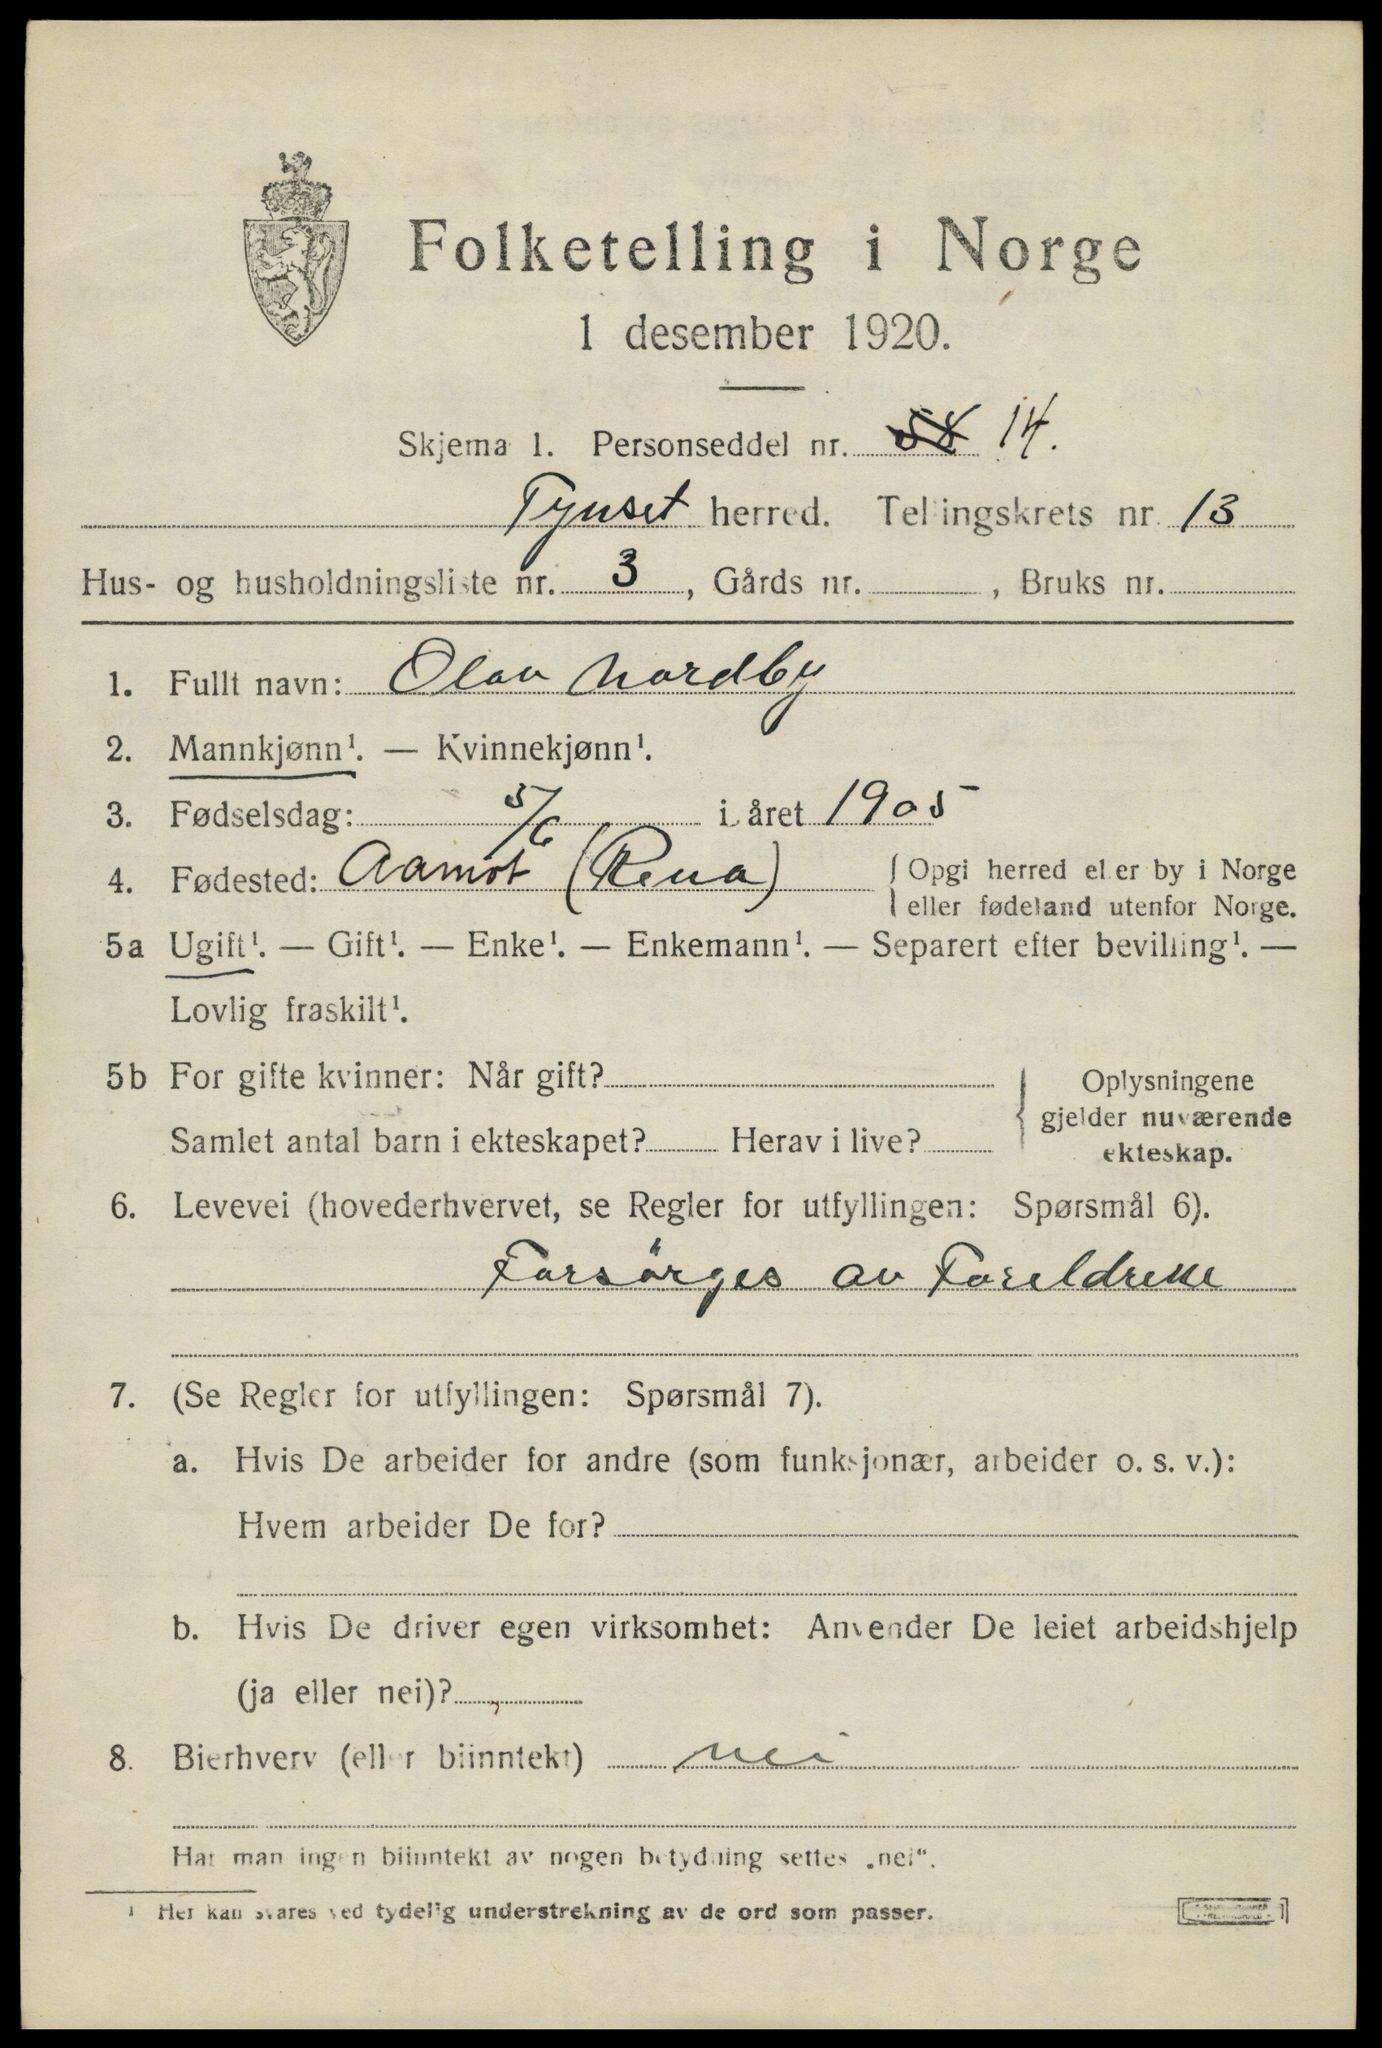 Folketelling i Norge
1 desember 1920.
Skjema 1. Personseddel nr. 58 14.
Tynset herred. Tellingskrets nr. 13
Hus- og husholdningsliste nr. 3, Gårds nr. , Bruks nr.
1. Fullt navn: Olav Nordby
2. Mannkjønn¹. — Kvinnekjønn¹.
3. Fødselsdag: 5/6 i året 1905
4. Fødested: Aamot (Rena) { Opgi herred eller by i Norge
eller fødeland utenfor Norge.
5a Ugift¹. — Gift¹. — Enke¹. — Enkemann¹. — Separert efter bevilling¹. —
Lovlig fraskilt¹.
5b For gifte kvinner: Når gift? { Oplysningene
gjelder nuværende
Samlet antal barn i ekteskapet? Herav i live?
ekteskap.
6. Levevei (hovederhvervet, se Regler for utfyllingen: Spørsmål 6).
Forsørges av Foreldrene
7. (Se Regler for utfyllingen: Spørsmål 7).
a. Hvis De arbeider for andre (som funksjonær, arbeider o. s. v.):
Hvem arbeider De for?
b. Hvis De driver egen virksomhet: Anvender De leiet arbeidshjelp
(ja eller nei)?
8. Bierhverv (eller biinntekt) nei
Har man ingen biinntekt av nogen betydning settes „nei“.
¹ Her kan svares ved tydelig understrekning av de ord som passer.